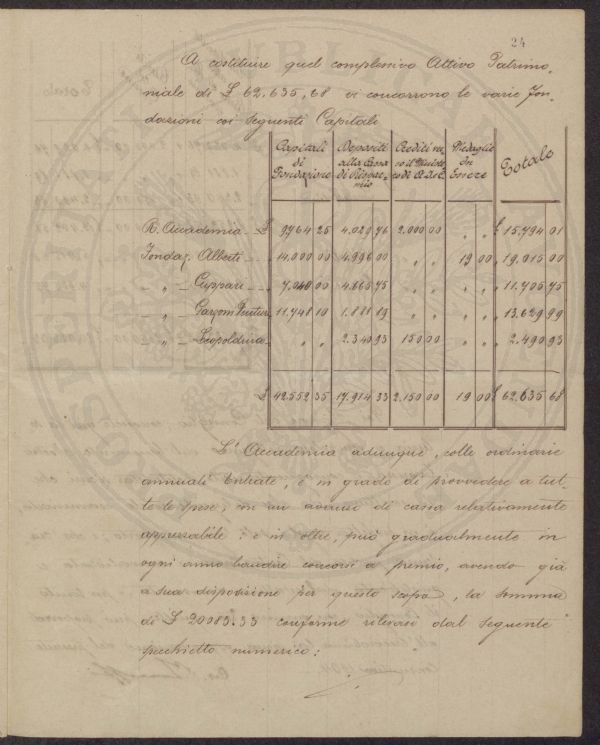 24
A costituire quel complessivo Attivo Patrimo,
niale di £ 62.635,68 vi concorrono le varie Fon,
dazioni coi seguenti Capitali
Capitali di Fondazione | Depositi alla Cassa di Risparmio | Crediti | Medaglie In Essere | Totale
R. Accademia £ 9764 25 4.029 76 2.000 00 " " £ 15.794 01
Fondaz. Alberti 14.000 00 4.996 00 " " 19 00 " 19.015 00
" " Cuppari 7.040 00 4.665 75 " " " " " 11.705 75
" " 11.748 10 1.881 89 " " " " " 13.629 99
" " Leopoldina " " 2.340 93 150 00 " " " 2.490 93
£ 42.552 35 17.914 33 2.150 00 19 00 £ 62.635 68
L'Accademia adunque, colle ordinarie
annuali Entrate, è in grado di provvedere a tut,
te le spese, con un avanzo di cassa relativamente
apprezzabile: e in oltre, può gradualmente in
ogni anno bandire concorsi a premio, avendo già
a sua disposizione per questo scopo, la somma
di £ 20083.33 conforme rilevasi dal seguente
specchietto numerico: